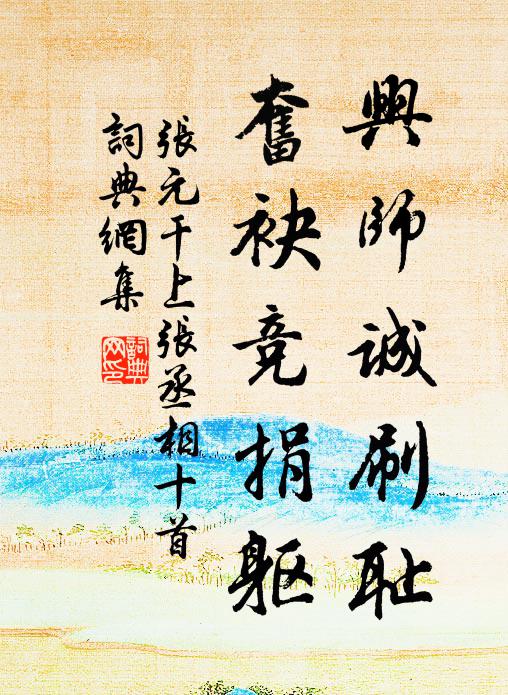 興師誠刷耻
奮袂竞捐軀
張元干上張丞相十首
詞典網集
詞典网印